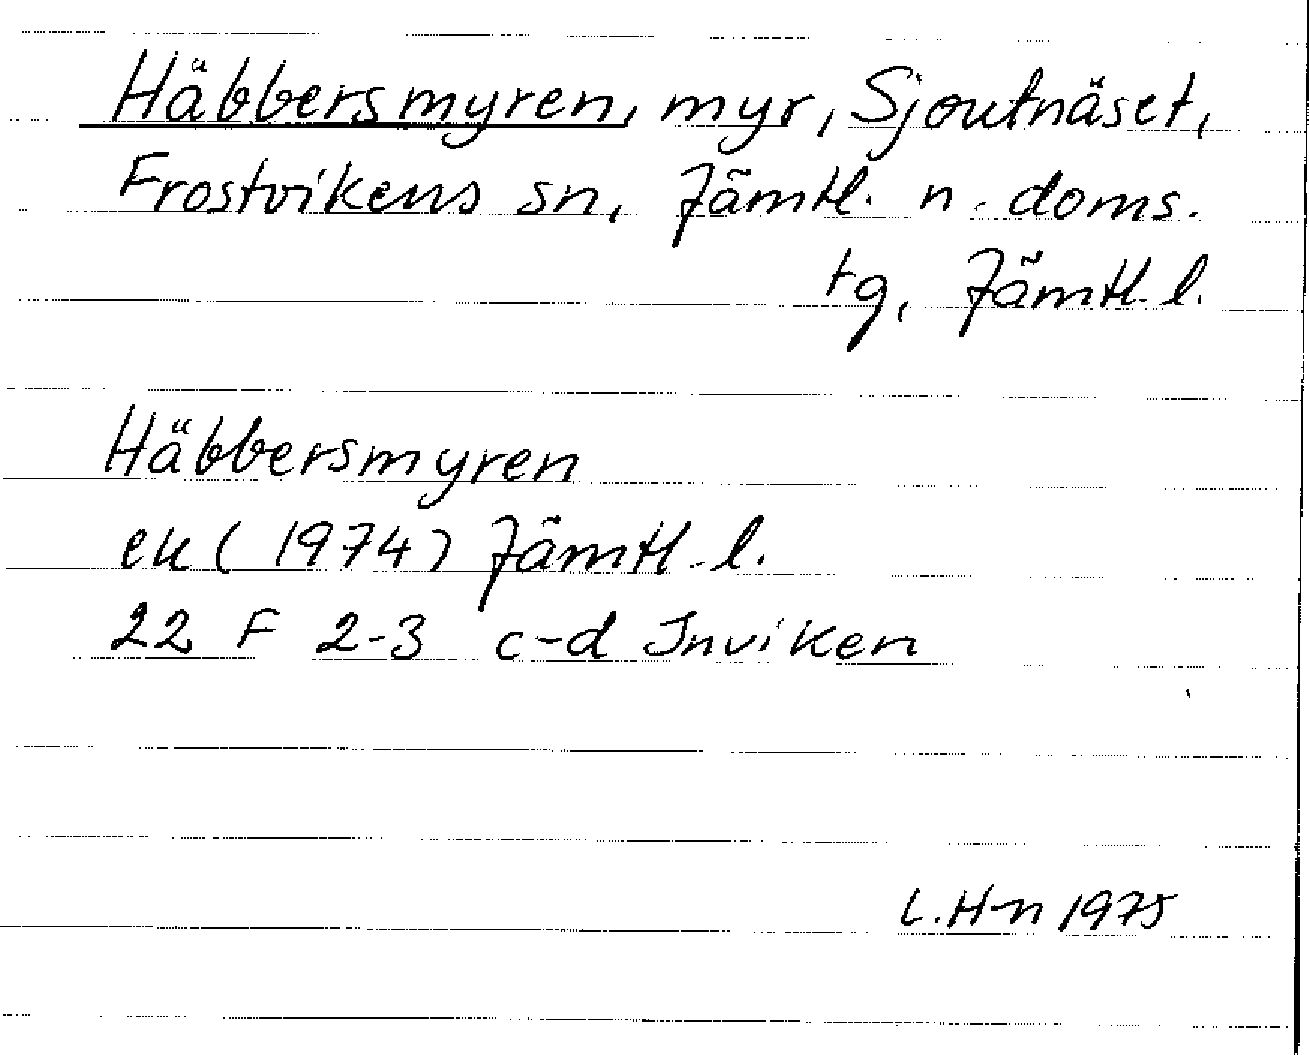 Häbbersmyren, myr, Sjoutnäset,
Frostvikens sn, Jämtl. n. doms.
tg, Jämtl. l.
Häbbersmyren
ek (1974) Jämtl. l.
22 F 2-3 c-d Inviken
L. H-n 1975